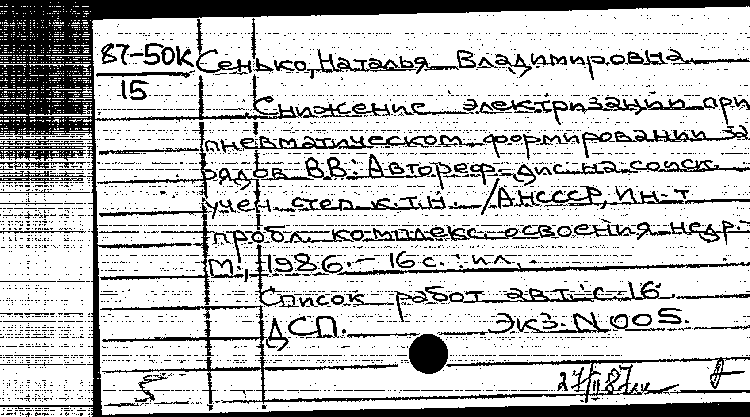 87-50К Сенько, Наталья Владимировна
15
Снижение электризации при
пневматическом формировании за
рядов ВВ: Автореф. дис. на соиск.
учен. степ. к.т.н. /АНСССР, Ин-т
пробл. комплекс. освоения недр.-
М., 1986.- 16 с.: ил.
Список работ авт.: с. 16
ДСП. Экз. N 005.